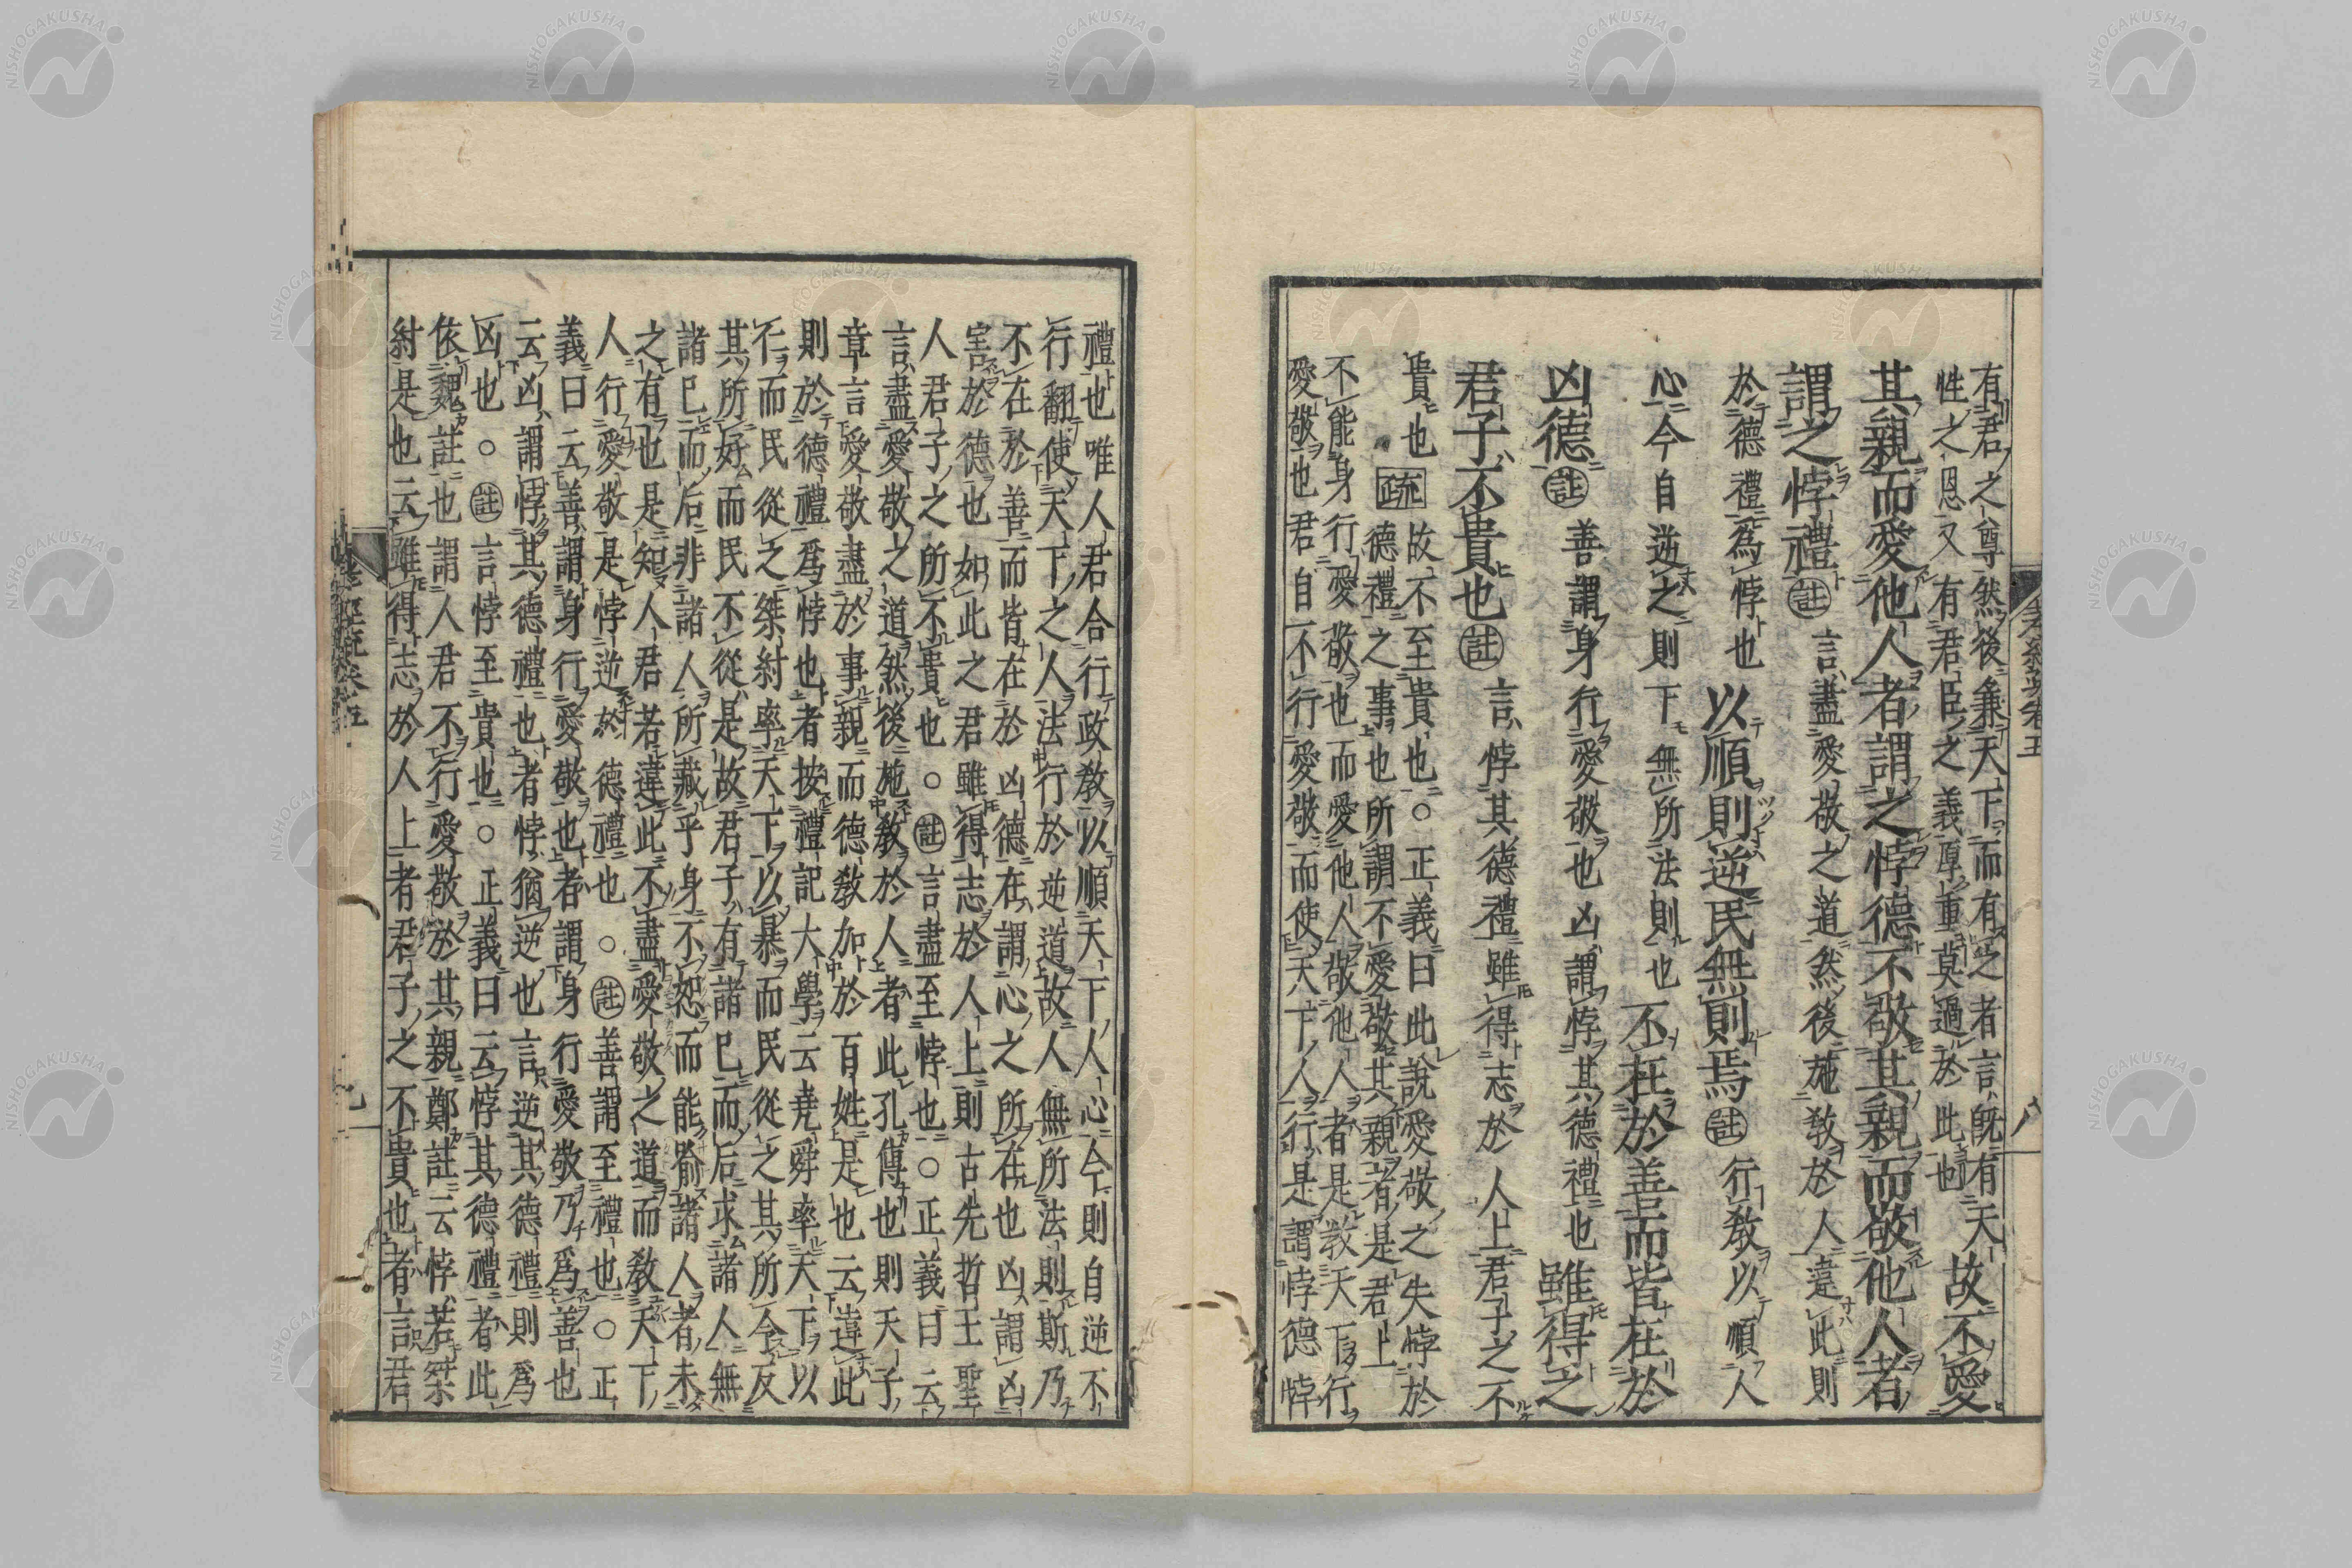 有君之尊然後兼天下而有之者言既有天
性之恩又有君臣之義厚重莫過於此也
故不愛
其親而愛他人者謂之悖德不敬其親而敬他人者
謂之悖禮註言盡愛敬之道然後施教於人違此則
於德禮為悖也以順則逆民無則焉註行教以順人
心今自逆之則下無所法則也不在於善而皆在於
凶德註善謂身行愛敬也凶謂悖其德禮也雖得之
君子不貴也註言悖其德禮雖得志於人上君子之不
貴也疏
故不至貴也○正義曰此說愛敬之失悖於
德禮之事也所謂不愛敬其親者是君上
不能身行愛敬也而愛他人敬他人者是教天下行
愛敬也君自不行愛敬而使天下人行是謂悖德悖
禮也唯人君合行政教以順天下人心今則自逆不
行翻使天下之人法行於逆道故人無所法則斯乃
不在於善而皆在於凶德在謂心之所在也凶謂凶
害於德也如此之君雖得志於人上則古先哲王聖
人君子之所不貴也○註言盡至悖也○正義曰云
言盡愛敬之道然後施教於人者此孔傳也則天子
章言愛敬盡於事親而德教加於百姓是也云違此
則於德禮爲悖也者按禮記大學云堯舜率天下以
仁而民從之桀紂率天下以暴而民從之其所令反
其所好而民不從是故君子有諸已而后求諸人無
諸已而后非諸人所藏乎身不恕而能喻諸人者未
之有也是知人君若違此不盡愛敬之道而教天下
人行愛敬是悖逆於德禮也○註善謂至禮也○正
義曰云善謂身行愛敬也者謂身行愛敬乃爲善也
云凶謂悖其德禮也者悖猶逆也言逆其德禮則爲
凶也○註言悖至貴也○正義曰云悖其德禮者此
依魏註也謂人君不行愛敬於其親鄭註云悖若桀
紂是也云雖得志於人上者君子之不貴也者言君